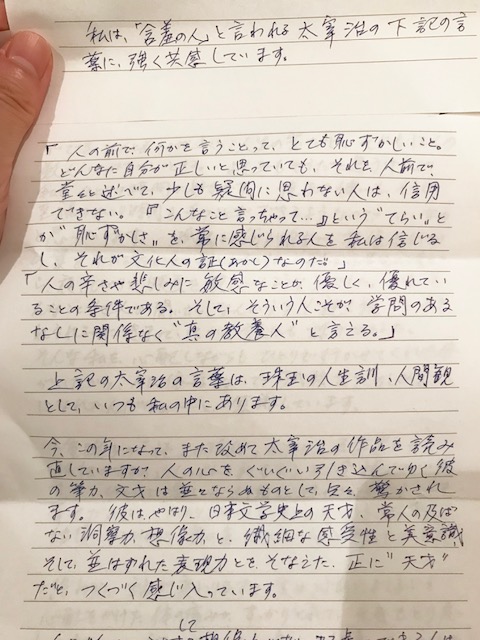 私は、「含羞の人」と言われる太宰治の下記の言
葉に、強く共感しています。
「人の前で、何かを言うことって、とても恥ずかしいこと。
どんなに自分が正しいと思っていても、それを、人前で、
堂々と述べて、少しも疑問に思わない人は、信用
できない。『こんなこと言っちゃって…』という“てらい”と
か“恥ずかしさ”を、常に感じられる人を私は信じる
し、それが文化人の証(あかし)なのだ。」
「人の辛さや悲しみに敏感なことが、優しく、優れてい
ることの条件である。そして、そういう人こそが、学問のある
なしに関係なく“真の教養人”と言える。」
上記の太宰治の言葉は、珠玉の人生訓、人間観
として、いつも私の中にあります。
今、この年になって、また改めて太宰治の作品を読み
直していますが、人の心を、ぐいぐい引き込んでゆく彼
の筆力、文才は並々ならぬものとして、驚かされ
ます。彼は、やはり、日本文学史上の天才、常人の及ば
ない洞察力、想像力、と、繊細な感受性と美意識、
そして、並はずれた表現力とを、そなえた、正に“天才”
だと、つくづく感じ入っています。